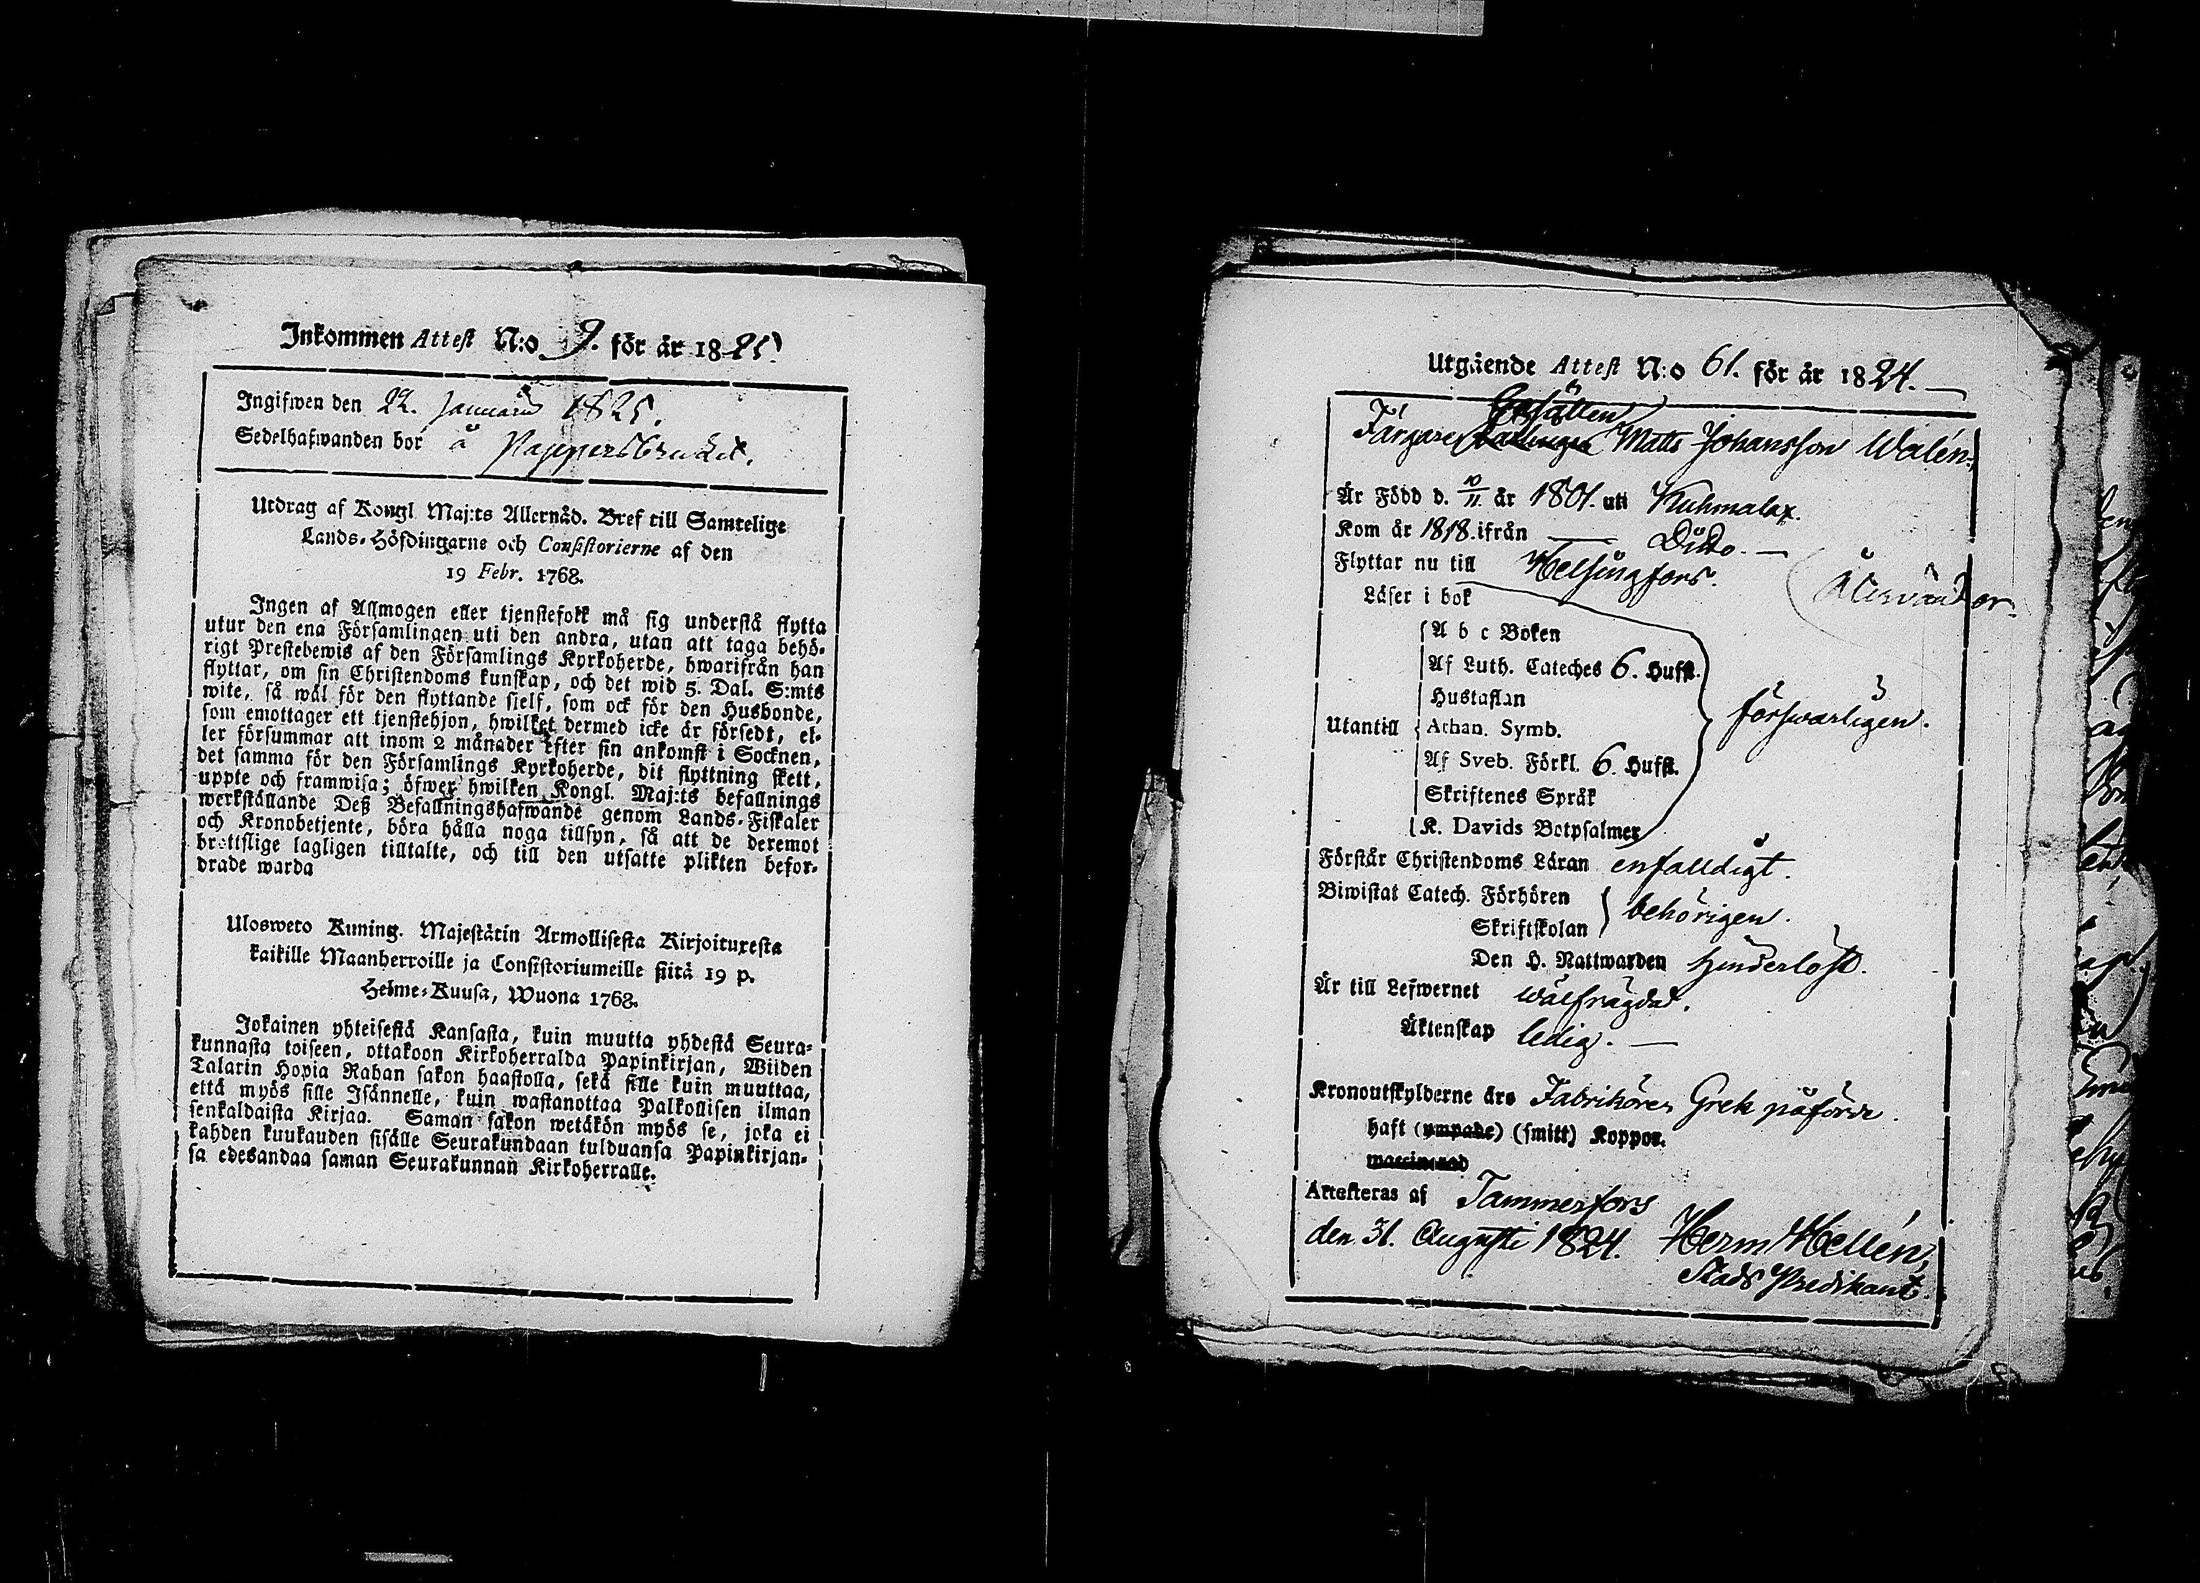 Inkommen Attest N:o 9. för år 1825
Ingifwen den 22. Januarii 1825.
Sedelhafwanden bor å Pappersbruket.
Utdrag af Kongl Maj:ts Allernåd. Bref till Samtelige
Lands-Höfdingarne och Consistorierne af den
19 Febr. 1768.
Ingen af Allmogen eller tjenstefolk må sig understå flytta
utur den ena Församlingen uti den andra, utan att taga behö-
rigt Prestebewis af den Församlings Kyrkoherde, hwarifrån han
flyttar, om sin Christendoms kunskap, och det wid 5. Dal. S:mts
wite, så wäl för den flyttande sielf, som ock för den Husbonde,
som emottager ett tjenstehjon, hwilket dermed icke är försedt, el-
ler försummar att inom 2 månader efter sin ankomst i Socknen,
det samma för den Församlings Kyrkoherde, dit flyttning skett,
uppte och framwisa; öfwer hwilken Kongl. Maj:ts befallnings
werkställande Deß Befallningshafwande genom Lands-Fiskaler
och Kronobetjente, böra hålla noga tillsyn, så att de deremot
brottslige lagligen tilltalte, och till den utsatte plikten befor-
drade warda
Ulosweto Kuning. Majestätin Armollisesta Kirjoituxesta
kaikille Maanherroille ja Consistoriumeille siitä 19 p.
Helme-Kuusa, Wuona 1768.
Jokainen yhteisestä Kansasta, kuin muutta yhdestä Seura-
kunnasta toiseen, ottakoon Kirkoherralda Papinkirjan, Wiiden
Talarin Hopia Rahan sakon haastolla, sekä sille kuin muuttaa,
että myös sille Isännelle, kuin wastanottaa Palkollisen ilman
senkaldaista Kirjaa. Saman sakon wetäkön myös se, joka ei
kahden kuukauden sisälle Seurakundaan tulduansa Papinkirjan-
sa edesandaa saman Seurakunnan Kirkoherralle.
Utgående Attest N:o 61. för år 1824.
Gesällen
Färgare Matts Johansson Walén,
Är Född d. 10/11 år 1801. uti Kuhmalax.
Kom år 1818. ifrån Ditto.
Flyttar nu till Helsingfors.
Återvänder
Läser i bok
A b c Boken
Af Luth. Cateches 6. Hufst.
Hustaflan
Utantill Athan. Symb. förswarligen.
Af Sveb. Förkl. 6. Hufst.
Skriftenes Språk
K. Davids Botpsalmer
Förstår Christendoms Läran enfalldigt.
Biwistat Catech. Förhören behörigen.
Skriftskolan
Den H. Nattwarden hinderlöst.
Är till Lefwernet wälfrägdat.
Äktenskap ledig.
Kronoutskylderne äro Fabrikören Grek påförde.
haft (ympade) (smitt) Koppor.
Attesteras af Tammerfors
den 31. Augusti 1824. Herm Hellén,
Stads Predikant.